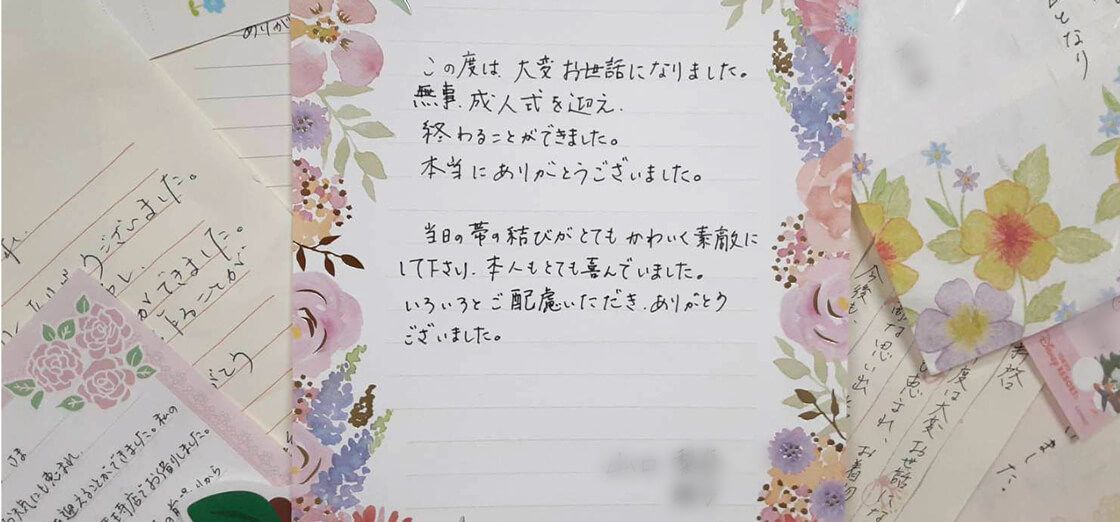 ありが
ございました。
できました。
ることが
さま
天気にも恵まれ、
迎えることができました。私の
店でお借りしました。
から
この度は、大変お世話になりました。
無事、成人式を迎え、
終わることができました。
本当にありがとうございました。
当日の帯の結びがとてもかわいく素敵に
して下さり、本人もとても喜んでいました。
いろいろとご配慮いただき、ありがとう
ございました。
となり
啓
度は大変お世話にな
恵まれ、お着物
な思い出
今後も、
ました.